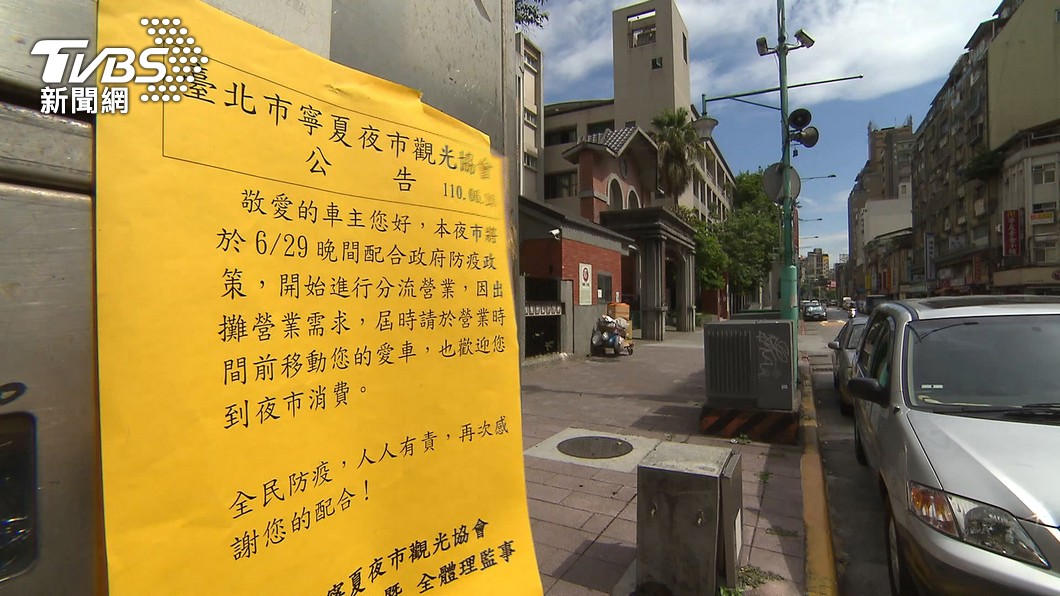 TVBS
新聞網
臺北市寧夏夜市觀光協會
公告
110.06
敬愛的車主您好，本夜市將
於6/29晚間配合政府防疫政
策，開始進行分流營業，因出
攤營業需求，屆時請於營業時
間前移動您的愛車，也歡迎您
到夜市消費。
全民防疫，人人有責，再次感
謝您的配合！
寧夏夜市觀光協會
暨 全體理監事